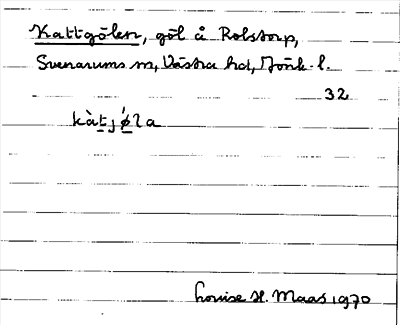 Kattgölen, göl å Rolstorp,
Svenarums sn, Västra hd, Jönk. l.
32
kàtjǿla
Louise H. Maas 1970